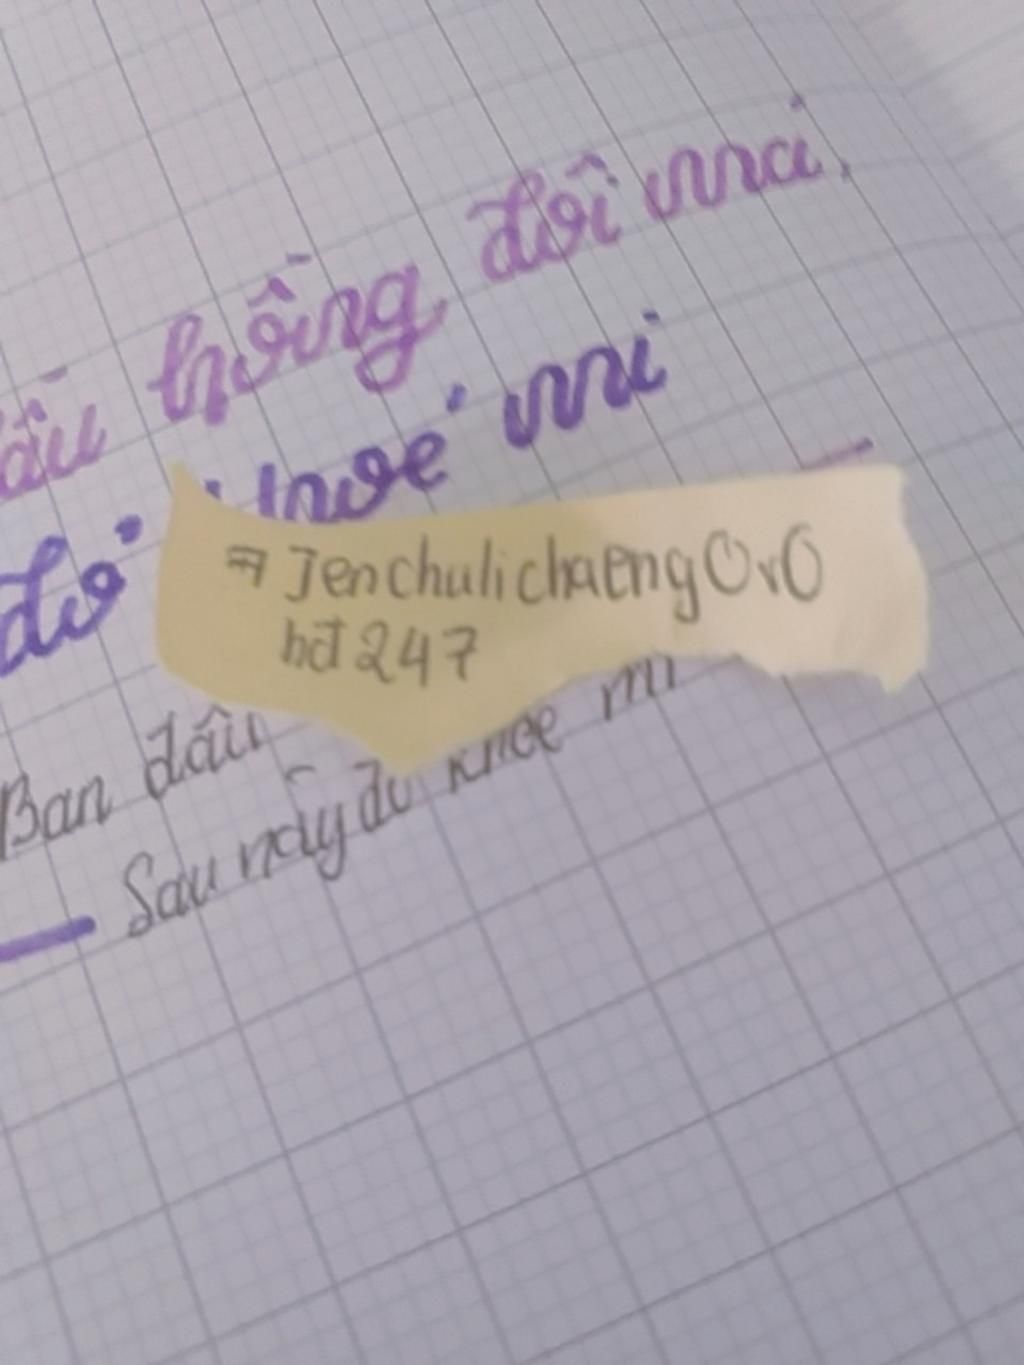 hồng đôi má,
đỏ khoé mi
#JenchulichaengOvO
hđ247
Ban đầu
Sau này đỏ khoé mi